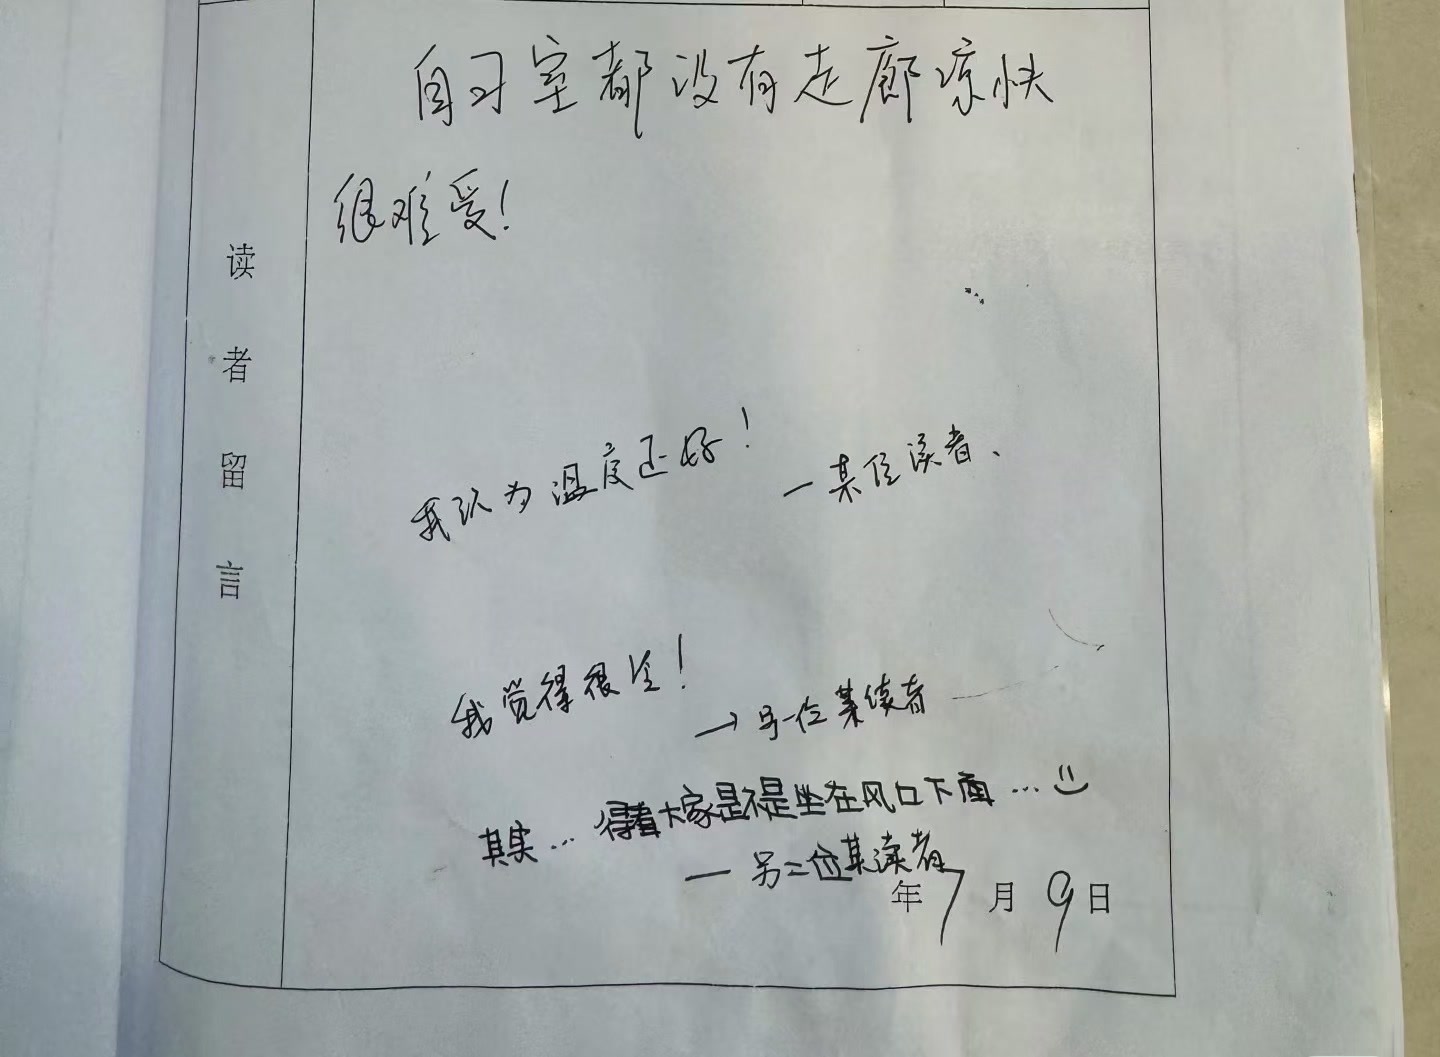 自习室都没有走廊凉快
很难受!
读者留言
我认为温度还好!
—某位读者、
我觉得很冷!
→另一位某读者
其实…得看大家是不是坐在风口下面…
—另二位某读者
年7月9日